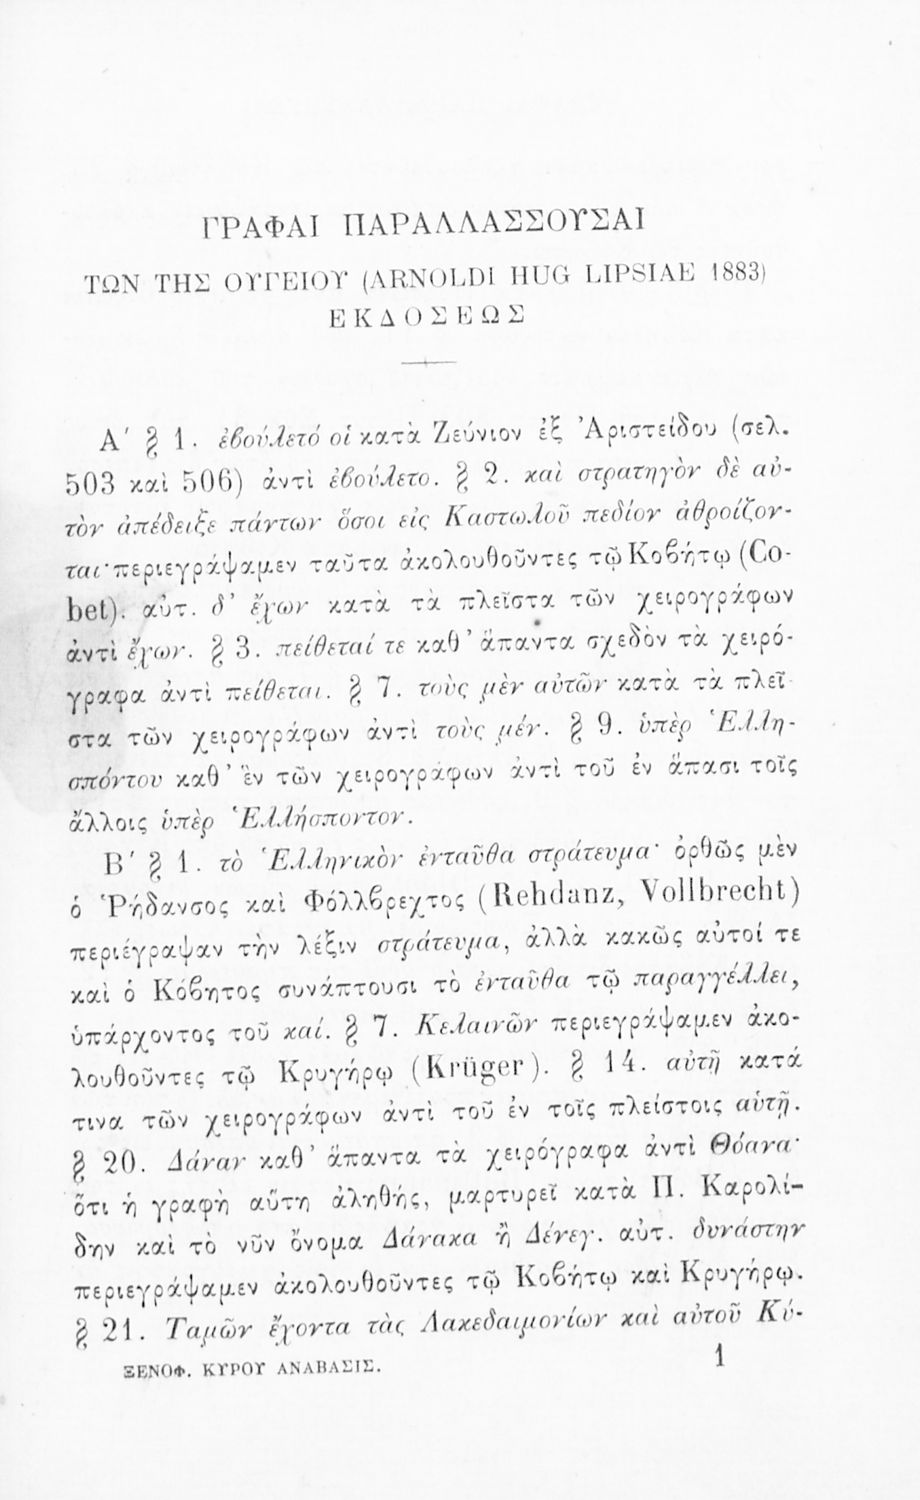 ΓΡΑΦΑΙ ΠΑΡΑΛΛΑΣΣΟΥΣΑΙ
ΤΩΝ ΤΗΣ ΟΥΓΕΙΟΥ (ARNOLDI HUG LIPSIAE 1883)
ΕΚΔΟΣΕΩΣ
Α′ § 1. ἐβούλετό οἱ κατὰ Ζεύνιον ἐξ Ἀριστείδου (σελ.
503 καὶ 506) ἀντὶ ἐβούλετο. § 2. καὶ στρατηγὸν δὲ αὐ-
τὸν ἀπέδειξε πάντων ὅσοι εἰς Καστωλοῦ πεδίον ἀθροίζον-
ται· περιεγράψαμεν ταῦτα ἀκολουθοῦντες τῷ Κοβήτῳ (Co-
bet). αὐτ. δ’ ἔχων κατὰ τὰ πλεῖστα τῶν χειρογράφων
ἀντὶ ἔχων. § 3. πείθεταί τε καθ’ ἅπαντα σχεδὸν τὰ χειρό-
γραφα ἀντὶ πείθεται. § 7. τοὺς μὲν αὐτῶν κατὰ τὰ πλεῖ-
στα τῶν χειρογράφων ἀντὶ τοὺς μέν. § 9. ὑπὲρ Ἑλλη-
σπόντου καθ’ ἓν τῶν χειρογράφων ἀντὶ τοῦ ἐν ἅπασι τοῖς
ἄλλοις ὑπὲρ Ἑλλήσποντον.
Β′ § 1. τὸ Ἑλληνικὸν ἐνταῦθα στράτευμα· ὀρθῶς μὲν
ὁ Ῥήδανσος καὶ Φόλλβρεχτος (Rehdanz, Vollbrecht)
περιέγραψαν τὴν λέξιν στράτευμα, ἀλλὰ κακῶς αὐτοί τε
καὶ ὁ Κόβητος συνάπτουσι τὸ ἐνταῦθα τῷ παραγγέλλει,
ὑπάρχοντος τοῦ καί. § 7. Κελαινῶν περιεγράψαμεν ἀκο-
λουθοῦντες τῷ Κρυγήρῳ (Krüger). § 14. αὐτῇ κατά
τινα τῶν χειρογράφων ἀντὶ τοῦ ἐν τοῖς πλείστοις αὑτῇ.
§ 20. Δάναν καθ’ ἅπαντα τὰ χειρόγραφα ἀντὶ Θόανα·
ὅτι ἡ γραφὴ αὕτη ἀληθής, μαρτυρεῖ κατὰ Π. Καρολί-
δην καὶ τὸ νῦν ὄνομα Δάνακα ἢ Δένεγ. αὐτ. δυνάστην
περιεγράψαμεν ἀκολουθοῦντες τῷ Κοβήτῳ καὶ Κρυγήρῳ.
§ 21. Ταμῶν ἔχοντα τὰς Λακεδαιμονίων καὶ αὐτοῦ Κύ-
ΞΕΝΟΦ. ΚΥΡΟΥ ΑΝΑΒΑΣΙΣ.
1